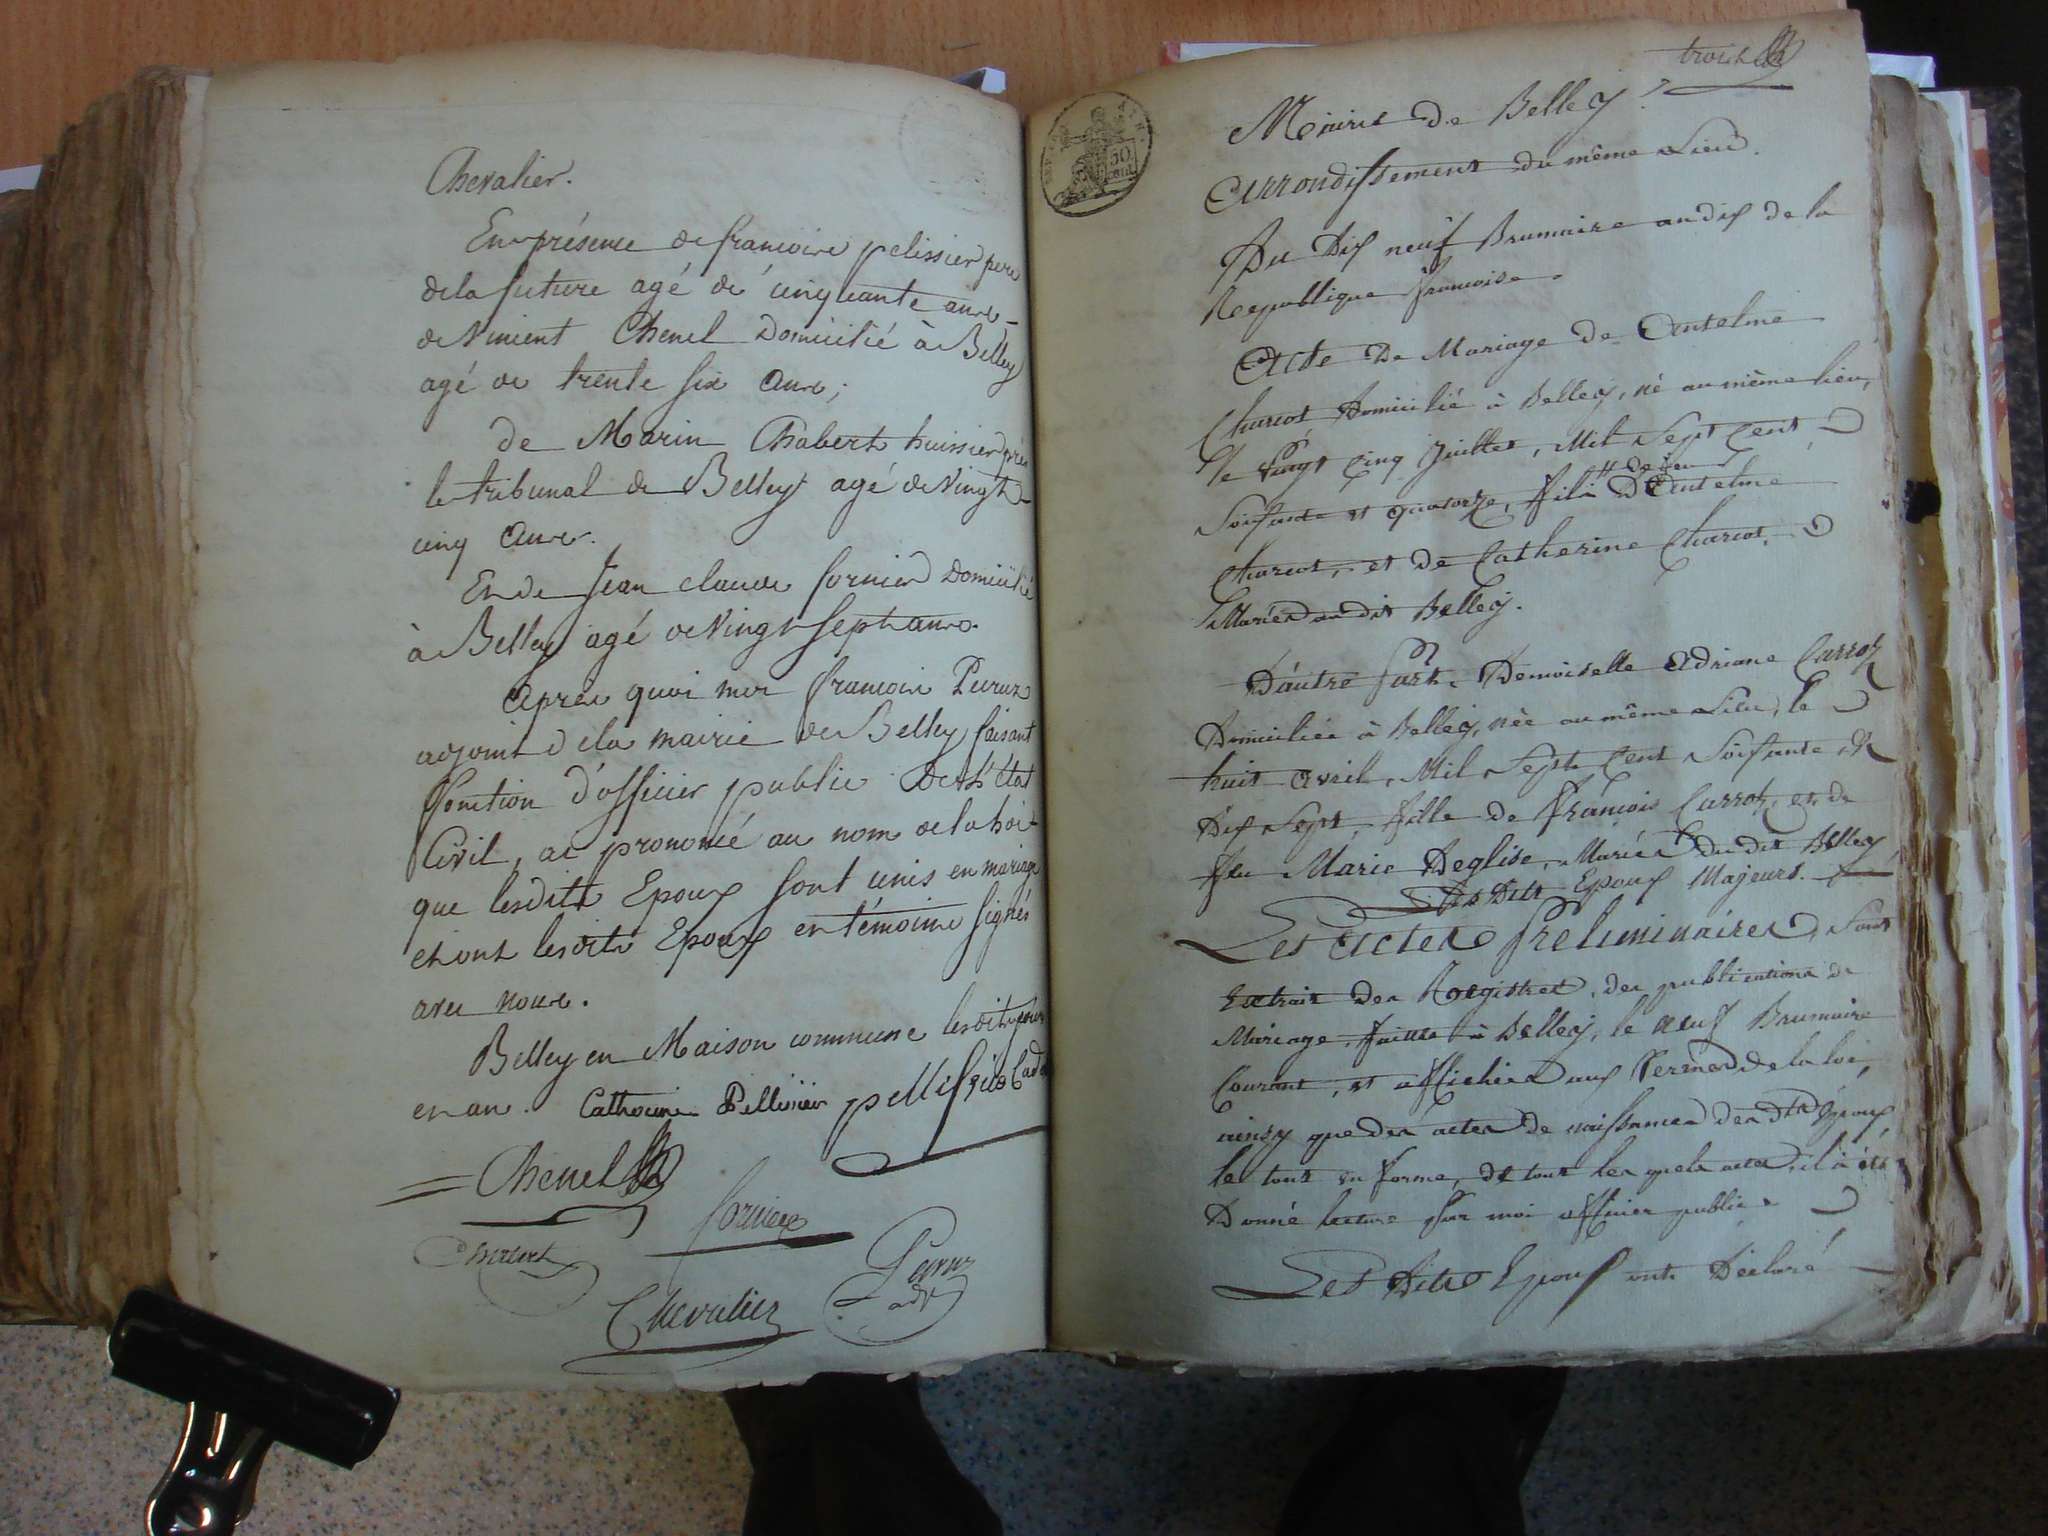 Chevalier.
En présence de francoise pelissier pere
de la future agé de cinquante ans
de Vincent Chenel Domicilié à Belley
agé de trente six ans;
de Marin Chabert huissier près
le tribunal de Belley agé de Vingt
cinq ans.
Et de Jean claude fornier Domicilié
à Belley agé de Vingt sept ans.
Après quoi moi francois Peyruz
adjoint de la mairie de Belley faisant
fonction d'officier public de l'Etat
Civil, ai prononcé au nom de la loi
que lesdits Epoux sont unis en mariage
et ont lesdits Epoux et témoins signés
avec nous.
Belley en Maison commune lesdits jour
et an. Catherine Pellissier pellissier Cadet
Chenel
fornier
Chabert
Chevalier
adj
trois
50
cent
Mairie de Belley
Arrondissement du même Lieu.
Du Dix neuf Brumaire an dix de la
Republique francoise.
Acte De Mariage de Antelme
Charcot Domicilié à Belley, né au même lieu,
le Vingt Cinq Juillet, Mil Sept Cent
Soixante et quatorze, fils de feu D'Antelme
Charcot, et de Catherine Charcot,
Mariés au dit Belley.
D'autre part, Demoiselle Adriane Carrot
Domiciliée à Belley, née au même Lieu, le
huit Avril, Mil Sept Cent Soixante et
Dix Sept, fille de François Carrot, et de
feu Marie Deglise, Mariés du dit Belley
Les Dits Epoux Majeurs.
Les Actes Preliminaires, Sont
Extrait des Registres, des publications de
Mariage, faittes à Belley, le neuf Brumaire
Courant, et affichées aux Termes de la loi,
ainsy que des actes de naissances des dts Epoux,
le tout en forme, de tous les quels actes, il à été
Donné lecture par moi officier public
Les Dits Epoux ont Déclaré